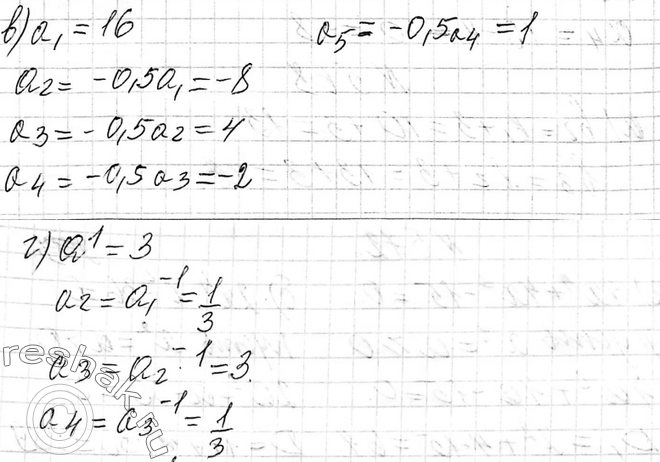 в) a₁ = 16
a₂ = -0,5a₁ = -8
a₃ = -0,5a₂ = 4
a₄ = -0,5a₃ = -2
a₅ = -0,5a₄ = 1
г) a¹ = 3
a₂ = a₁⁻¹ = 1/3
a₃ = a₂⁻¹ = 3.
a₄ = a₃⁻¹ = 1/3
reshak.ru